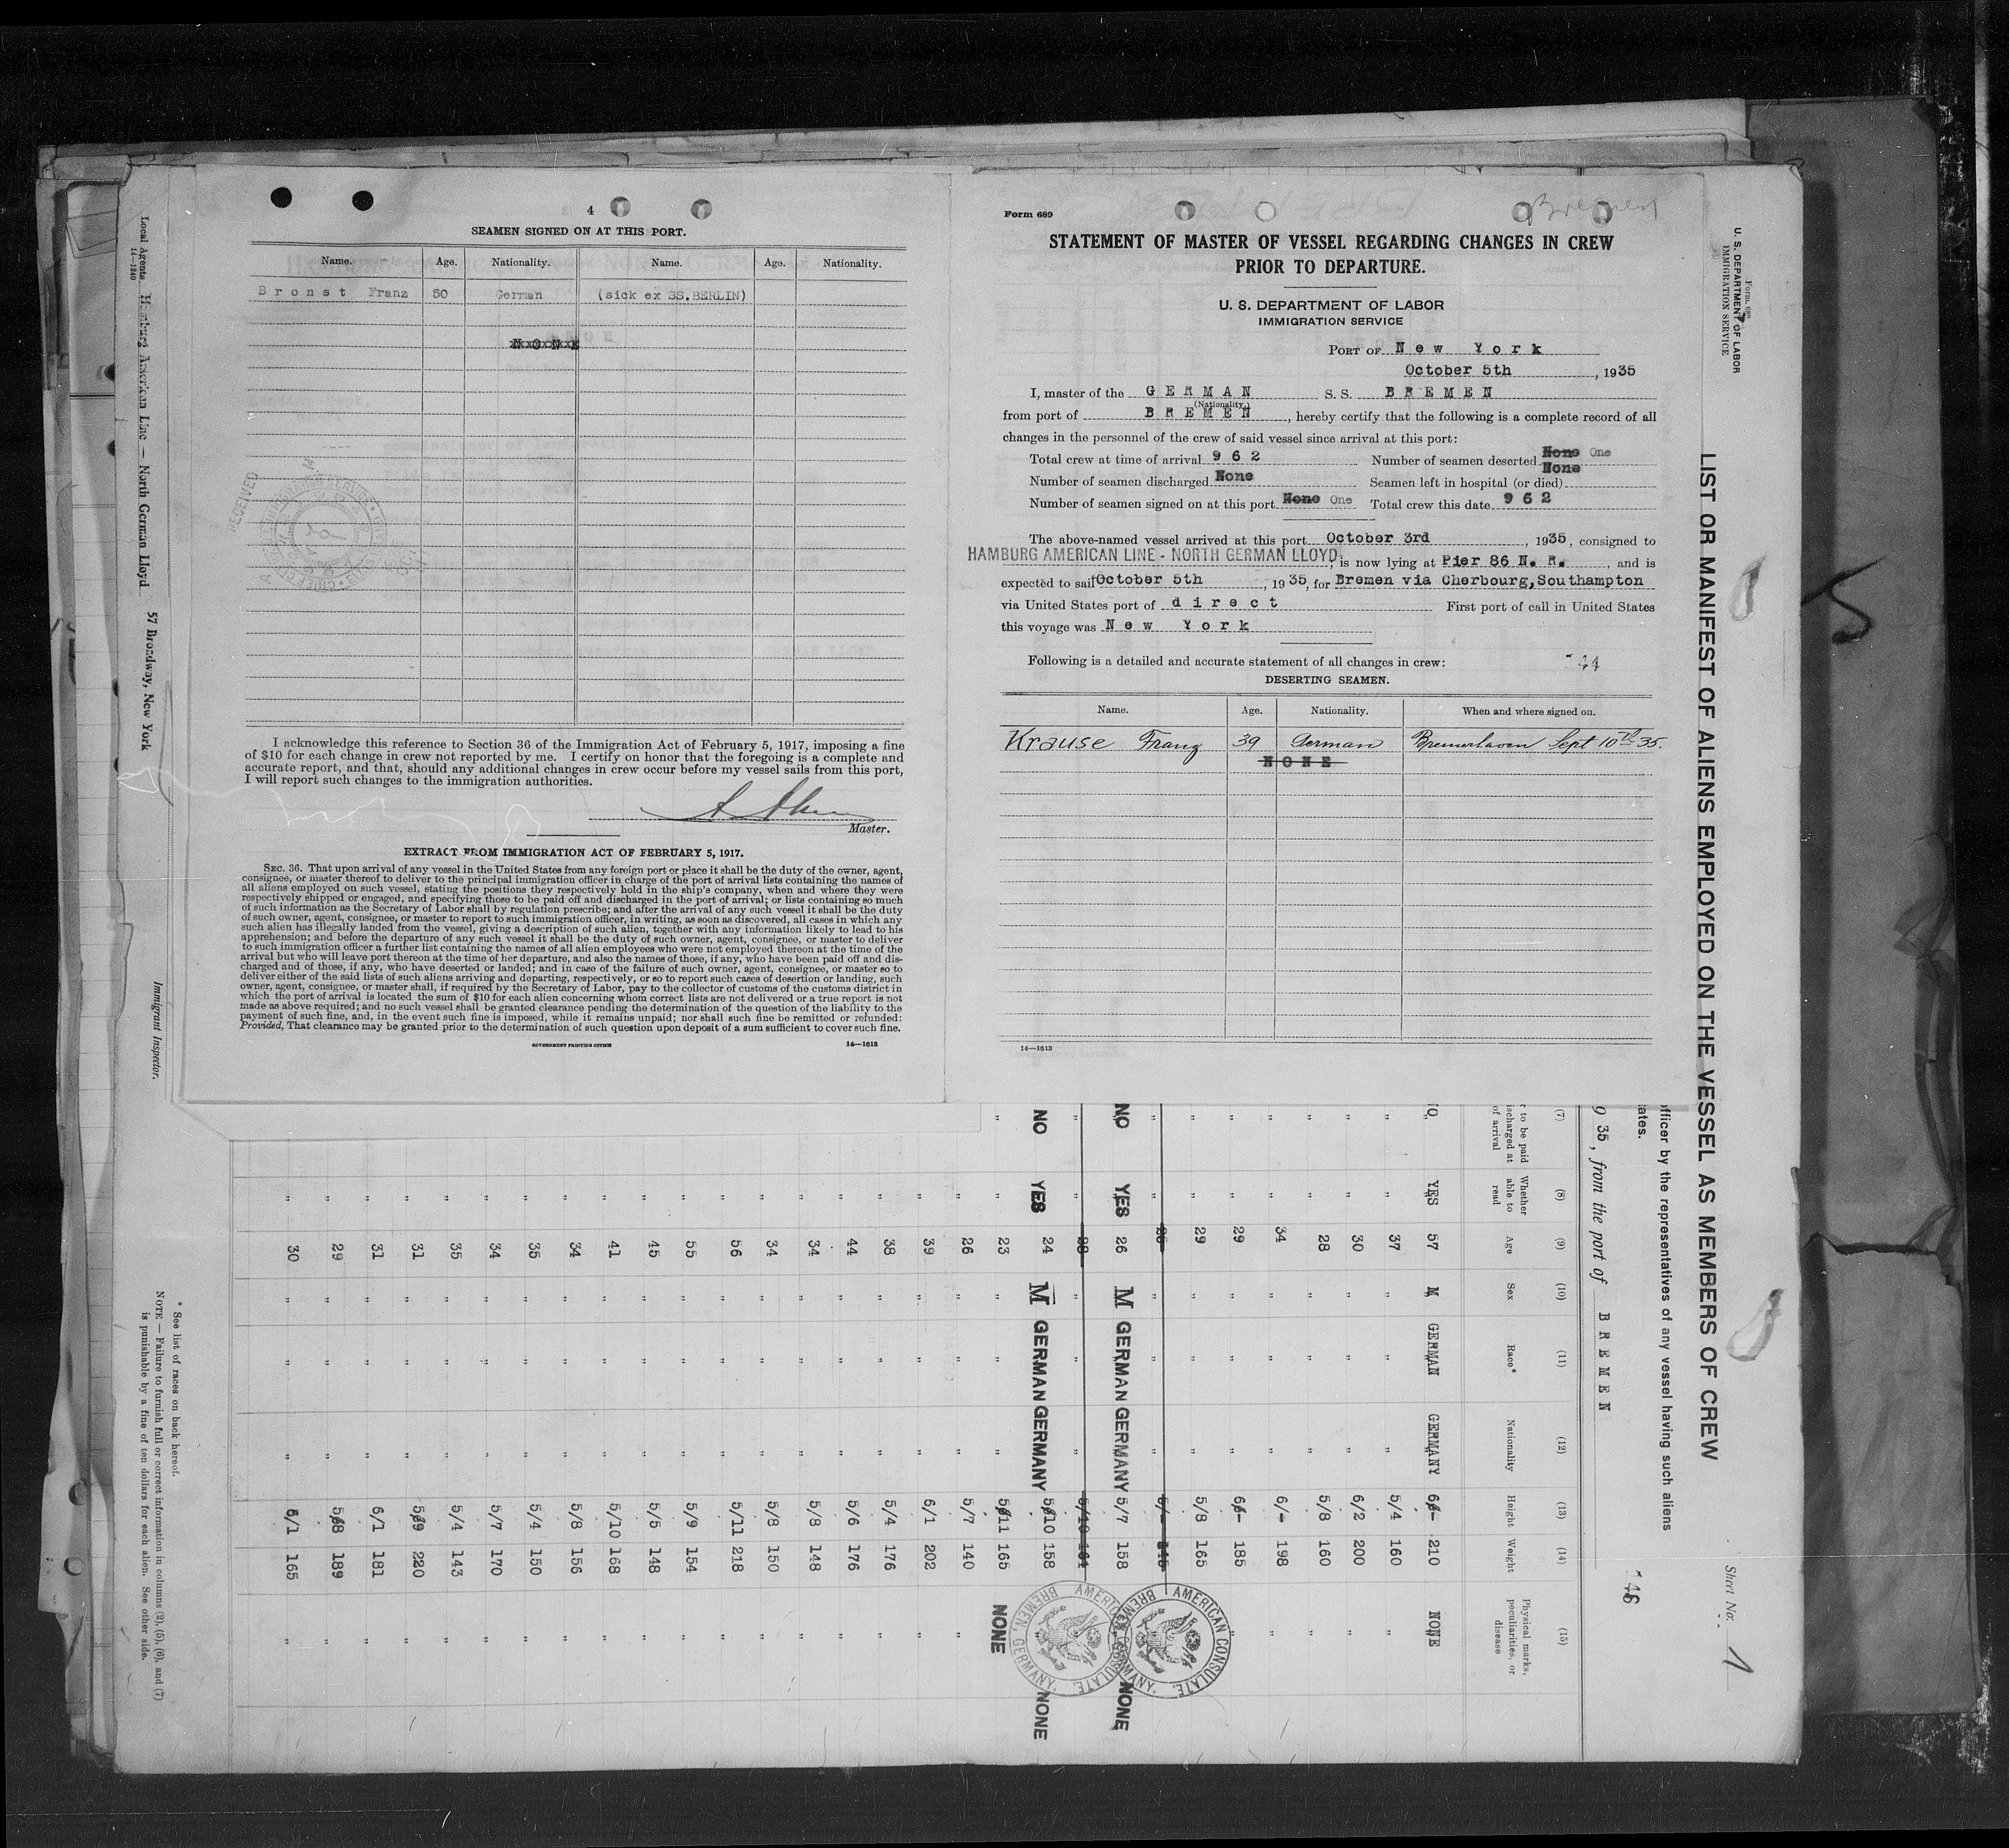 4
SEAMEN SIGNED ON AT THIS PORT.
Name. Age. Nationality. Name. Age. Nationality.
Bronst Franz 50 German (sick ex SS.BERLIN)
NONE
I acknowledge this reference to Section 36 of the Immigration Act of February 5, 1917, imposing a fine
of $10 for each change in crew not reported by me. I certify on honor that the foregoing is a complete and
accurate report, and that, should any additional changes in crew occur before my vessel sails from this port,
I will report such changes to the immigration authorities.
Master.
EXTRACT FROM IMMIGRATION ACT OF FEBRUARY 5, 1917.
SEC. 36. That upon arrival of any vessel in the United States from any foreign port or place it shall be the duty of the owner, agent,
consignee, or master thereof to deliver to the principal immigration officer in charge of the port of arrival lists containing the names of
all aliens employed on such vessel, stating the positions they respectively hold in the ship's company, when and where they were
respectively shipped or engaged, and specifying those to be paid off and discharged in the port of arrival; or lists containing so much
of such information as the Secretary of Labor shall by regulation prescribe; and after the arrival of any such vessel it shall be the duty
of such owner, agent, consignee, or master to report to such immigration officer, in writing, as soon as discovered, all cases in which any
such alien has illegally landed from the vessel, giving a description of such alien, together with any information likely to lead to his
apprehension; and before the departure of any such vessel it shall be the duty of such owner, agent, consignee, or master to deliver
to such immigration officer a further list containing the names of all alien employees who were not employed thereon at the time of the
arrival but who will leave port thereon at the time of her departure, and also the names of those, if any, who have been paid off and dis-
charged and of those, if any, who have deserted or landed; and in case of the failure of such owner, agent, consignee, or master so to
deliver either of the said lists of such aliens arriving and departing, respectively, or so to report such cases of desertion or landing, such
owner, agent, consignee, or master shall, if required by the Secretary of Labor, pay to the collector of customs of the customs district in
which the port of arrival is located the sum of $10 for each alien concerning whom correct lists are not delivered or a true report is not
made as above required; and no such vessel shall be granted clearance pending the determination of the question of the liability to the
payment of such fine, and, in the event such fine is imposed, while it remains unpaid; nor shall such fine be remitted or refunded:
Provided, That clearance may be granted prior to the determination of such question upon deposit of a sum sufficient to cover such fine.
GOVERNMENT PRINTING OFFICE 14—1613
Bremen
Form 689
STATEMENT OF MASTER OF VESSEL REGARDING CHANGES IN CREW
PRIOR TO DEPARTURE.
U. S. DEPARTMENT OF LABOR
IMMIGRATION SERVICE
PORT OF New York
October 5th, 1935
I, master of the GERMAN S. S. BREMEN
(Nationality)
from port of BREMEN, hereby certify that the following is a complete record of all
changes in the personnel of the crew of said vessel since arrival at this port:
Total crew at time of arrival 962 Number of seamen deserted None One
Number of seamen discharged None Seamen left in hospital (or died) None
Number of seamen signed on at this port None One Total crew this date 962
The above-named vessel arrived at this port October 3rd, 1935, consigned to
HAMBURG AMERICAN LINE - NORTH GERMAN LLOYD, is now lying at Pier 86 N. R., and is
expected to sail October 5th, 1935, for Bremen via Cherbourg,Southampton
via United States port of direct First port of call in United States
this voyage was New York
Following is a detailed and accurate statement of all changes in crew: 44
DESERTING SEAMEN.
Name. Age. Nationality. When and where signed on.
Krause Franz 39 German Bremerhaven Sept 10th 35.
NONE
14—1613
U. S. DEPARTMENT OF LABOR
IMMIGRATION SERVICE
Sheet No. 1
LIST OR MANIFEST OF ALIENS EMPLOYED ON THE VESSEL AS MEMBERS OF CREW
officer by the representatives of any vessel having such aliens
ates.
9 35, from the port of BREMEN
(7) (8) (9) (10) (11) (12) (13) (14) (15)
r to be paid ischarged at of arrival Whether able to read Age Sex Race* Nationality Height Weight Physical marks, peculiarities, or disease
NO YES 57 M GERMAN GERMANY 6/- 210 NONE
" " 37 " " " 5/4 160 "
" " 30 " " " 6/2 200 "
" " 28 " " " 5/8 160 "
" " 34 " " " 6/- 198 "
" " 29 " " " 6/- 185 "
" " 29 " " " 5/8 165
NO YES 26 M GERMAN GERMANY 5/7 158 NONE
NO YES 24 M GERMAN GERMANY 5/10 158 NONE
" " 23 " " " 5/11 165 NONE
" " 26 " " " 5/7 140 "
" " 39 " " " 6/1 202 "
" " 38 " " " 5/4 176 "
" " 44 " " " 5/6 176 "
" " 34 " " " 5/8 148 "
" " 34 " " " 5/8 150 "
" " 56 " " " 5/11 218 "
" " 55 " " " 5/9 154 "
" " 45 " " " 5/5 148 "
" " 41 " " " 5/10 168 "
" " 34 " " " 5/8 156 "
" " 35 " " " 5/4 150 "
" " 34 " " " 5/7 170 "
" " 35 " " " 5/4 143 "
" " 31 " " " 5/9 220 "
" " 31 " " " 6/1 181 "
" " 29 " " " 5/8 189 "
" " 30 " " " 6/1 165 "
AMERICAN CONSULATE.
BREMEN, GERMANY.
AMERICAN CONSULATE.
BREMEN, GERMANY.
* See list of races on back hereof.
NOTE — Failure to furnish full or correct information in columns (2), (5), (6), and (7)
is punishable by a fine of ten dollars for each alien. See other side.
Local Agents Hamburg American Line — North German Lloyd 57 Broadway, New York Immigrant Inspector.
14—1240